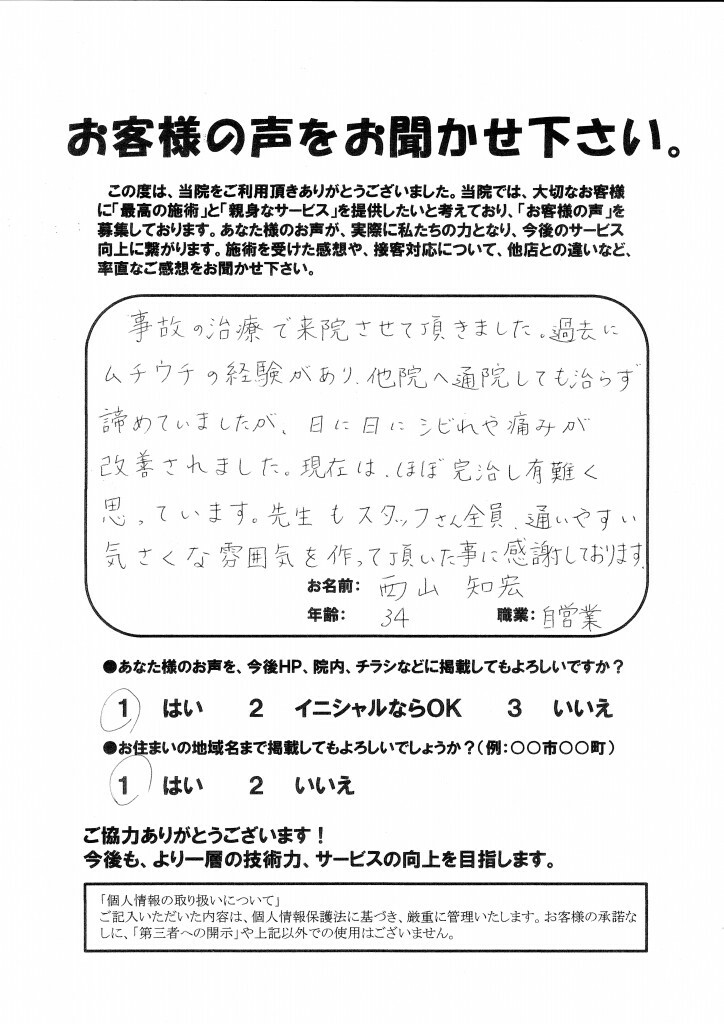 お客様の声をお聞かせ下さい。
この度は、当院をご利用頂きありがとうございました。当院では、大切なお客様
に「最高の施術」と「親身なサービス」を提供したいと考えており、「お客様の声」を
募集しております。あなた様のお声が、実際に私たちの力となり、今後のサービス
向上に繋がります。施術を受けた感想や、接客対応について、他店との違いなど、
率直なご感想をお聞かせ下さい。
事故の治療で来院させて頂きました。過去に
ムチウチの経験があり、他院へ通院しても治らず
諦めていましたが、日に日にシビれや痛みが
改善されました。現在は、ほぼ完治し有難く
思っています。先生もスタッフさん全員、通いやすい
気さくな雰囲気を作って頂いた事に感謝しております。
お名前： 西山 知宏
年齢： 34 職業： 自営業
●あなた様のお声を、今後HP、院内、チラシなどに掲載してもよろしいですか？
1 はい 2 イニシャルならOK 3 いいえ
●お住まいの地域名まで掲載してもよろしいでしょうか？（例：〇〇市〇〇町）
1 はい 2 いいえ
ご協力ありがとうございます！
今後も、より一層の技術力、サービスの向上を目指します。
「個人情報の取り扱いについて」
ご記入いただいた内容は、個人情報保護法に基づき、厳重に管理いたします。お客様の承諾な
しに、「第三者への開示」や上記以外での使用はございません。